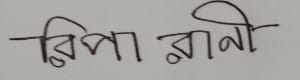 রিপা রানী